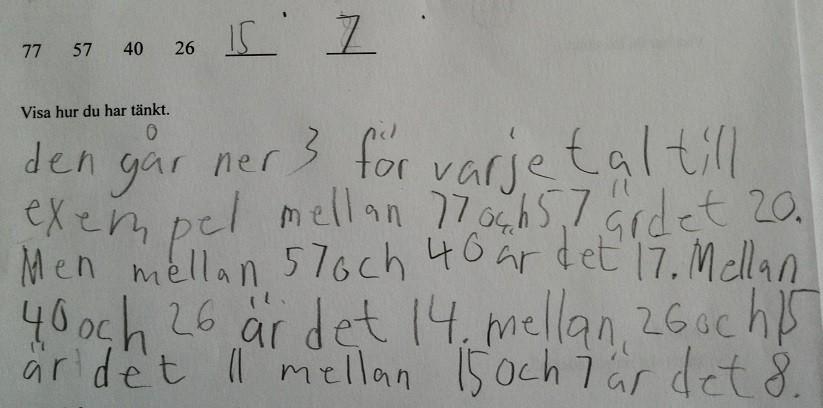 77 57 40 26 15 7
Visa hur du har tänkt.
den går ner 3 för varje tal till
exempel mellan 77 och 57 är det 20.
Men mellan 57 och 40 är det 17. Mellan
40 och 26 är det 14. mellan 26 och 15
är det 11 mellan 15 och 7 är det 8.